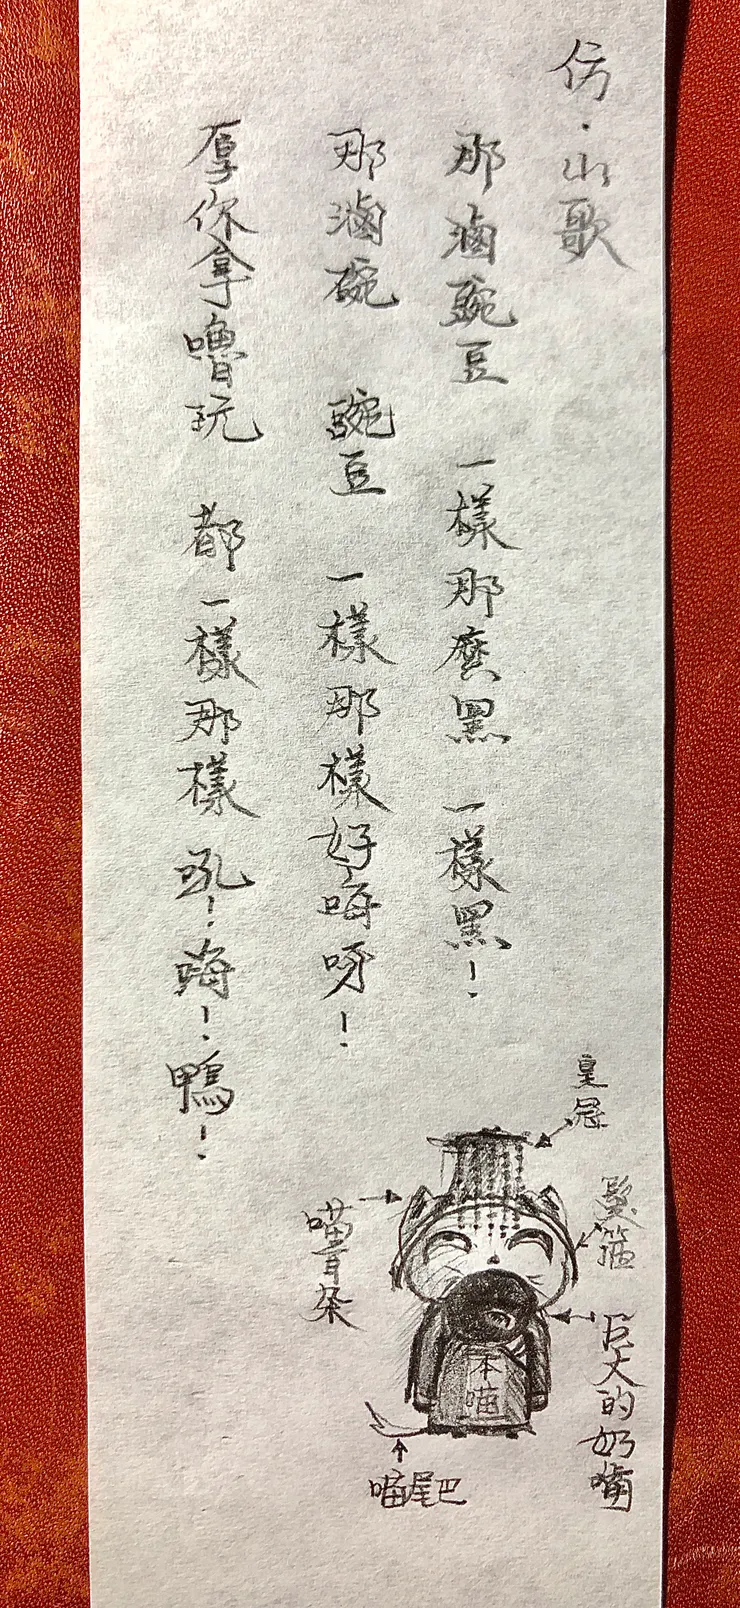 仿·山歌
那滷豌豆 一樣那麼黑 一樣黑！
那滷碗 豌豆 一樣那樣好嗨呀！
厚你拿嚕玩 都一樣那樣 吼！嗨！鴨！
皇冠
髮箍
喵耳朵
巨大的奶嘴
本喵
喵尾巴